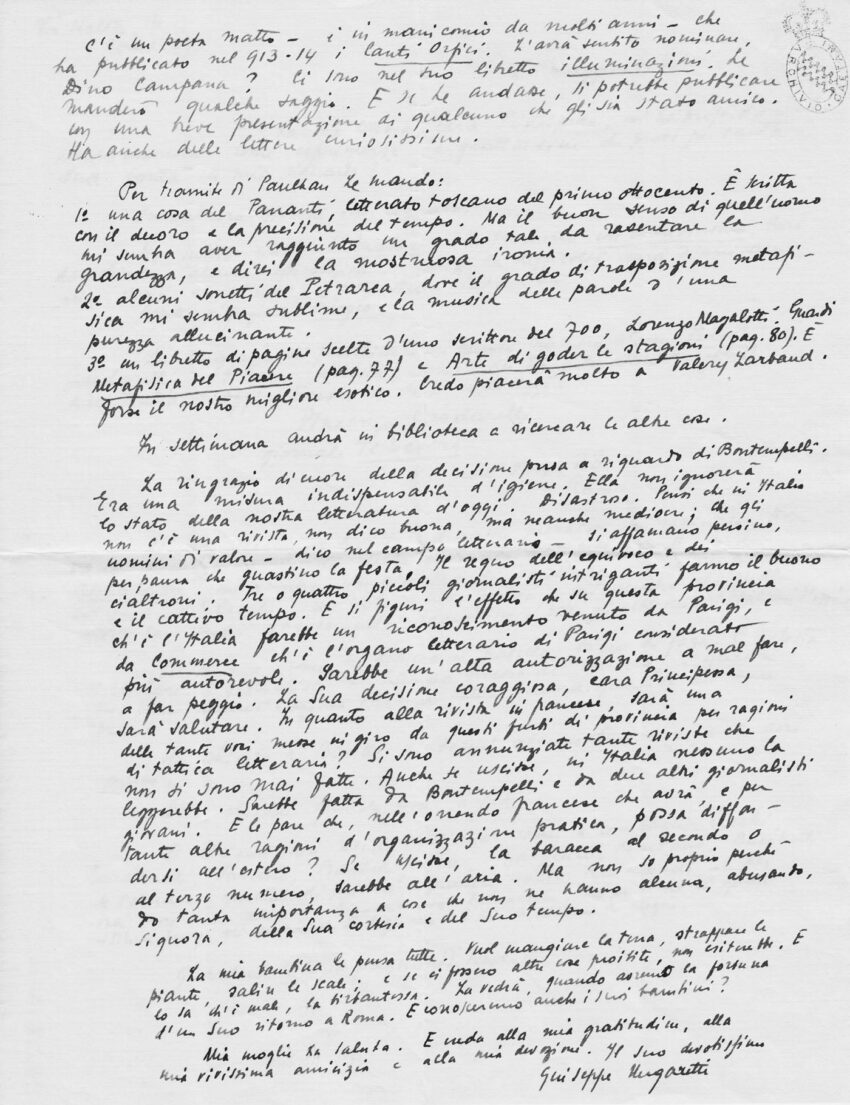 C'è un poeta matto – è in manicomio da molti anni – che
ha pubblicato nel 913-14 i Canti Orfici. L'avrà sentito nominare,
Dino Campana? Ci sono nel suo libretto illuminazioni. Le
manderò qualche saggio. E se he andasse, si potrebbe pubblicare
con una breve presentazione di qualcuno che gli sia stato amico.
Ha anche delle lettere curiosissime.
Per tramite di Paulhan Le mando:
1º una cosa del Pananti, letterato toscano del primo ottocento. È scritta
con il decoro e la precisione del tempo. Ma il buon senso di quell'uomo
mi sembra aver raggiunto un grado tale da rasentare la
grandezza, e direi la mostruosa ironia.
2º alcuni sonetti del Petrarca, dove il grado di trasposizione metafi-
sica mi sembra sublime, e la musica delle parole d'una
purezza allucinante.
3º un libretto di pagine scelte d'uno scrittore del 700, Lorenzo Magalotti. Guardi
Metafisica del Piacere (pag. 77) e Arte di goder le stagioni (pag. 80). È
forse il nostro migliore esotico. Credo piacerà molto a Valery Larbaud.
In settimana andrà in biblioteca a ricercare le altre cose.
La ringrazio di cuore della decisione presa a riguardo di Bontempelli.
Era una misura indispensabile d'igiene. Ella non ignorerà
lo stato della nostra letteratura d'oggi. Disastroso. Pensi che in Italia
non c'è una rivista, non dico buona, ma neanche mediocre; che gli
uomini di valore – dico nel campo letterario – si affamano persino,
per paura che guastino la festa. Il regno dell'equivoco e dei
cialtroni. Tre o quattro piccoli giornalisti intriganti fanno il buono
e il cattivo tempo. E si figuri l'effetto che su questa provincia
ch'è l'Italia farebbe un riconoscimento venuto da Parigi, e
da Commerce ch'è l'organo letterario di Parigi considerato
più autorevole. Sarebbe un'alta autorizzazione a mal fare,
a far peggio. La Sua decisione coraggiosa, cara Principessa,
sarà salutare. In quanto alla rivista in francese, sarà una
delle tante voci messe in giro da questi furbi di provincia per ragioni
di tattica letteraria? Si sono annunziate tante riviste che
non si sono mai fatte. Anche se uscisse, in Italia nessuno la
leggerebbe. Sarebbe fatta da Bontempelli e da due altri giornalisti
giovani. E le pare che, nell'orrendo francese che avrà, e per
tante altre ragioni d'organizzazione pratica, possa diffon-
dersi all'estero? Se uscisse, la baracca al secondo o
al terzo numero, sarebbe all'aria. Ma non so proprio perché
do tanta importanza a cose che non ne hanno alcuna, abusando,
Signora, della Sua cortesia e del Suo tempo.
La mia bambina le pensa tutte. Vuol mangiare la terra, strappare le
piante, salir le scale; e se ci fossero altre cose proibite, non esiterebbe. E
lo sa ch'è male, la birbantessa. La vedrà, quando avremo la fortuna
d'un Suo ritorno a Roma. E conosceremo anche i suoi bambini?
Mia moglie La saluta. E creda alla mia gratitudine, alla
mia vivissima amicizia e alla mia devozione. Il Suo devotissimo
Giuseppe Ungaretti